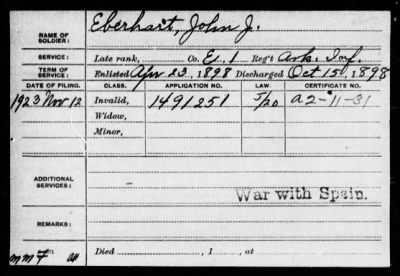 NAME OF SOLDIER: Eberhart, John J.
SERVICE: Late rank, Co. E, 1 Reg't Ark. Inf.
TERM OF SERVICE: Enlisted Apr 23, 1898 Discharged Oct 15, 1898
DATE OF FILING. CLASS. APPLICATION NO. LAW. CERTIFICATE NO.
1923 Nov 12 Invalid, 1491251 J/20 a2-11-31
Widow,
Minor,
ADDITIONAL SERVICES:
War with Spain.
REMARKS:
Died , 1 , at